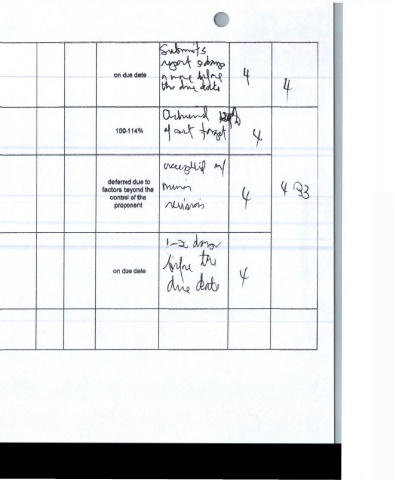 on due date
Submits
report 3 days
or more before
the due date
4
4
100-114%
Achieved
of set target
4
deferred due to
factors beyond the
control of the
proponent
accepted w/
minor
revisions
4
4
on due date
1-2 days
before the
due date
4